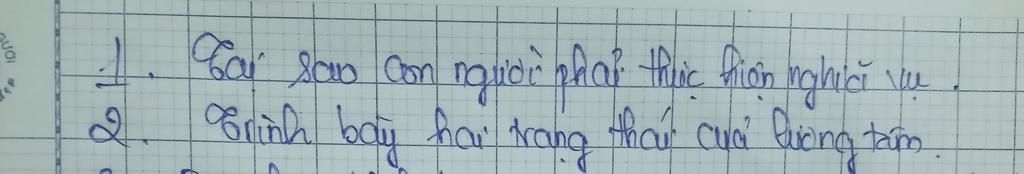 1. Tại sao con người phải thực hiện nghĩa vụ.
2. Trình bày hai trạng thái của lương tâm.